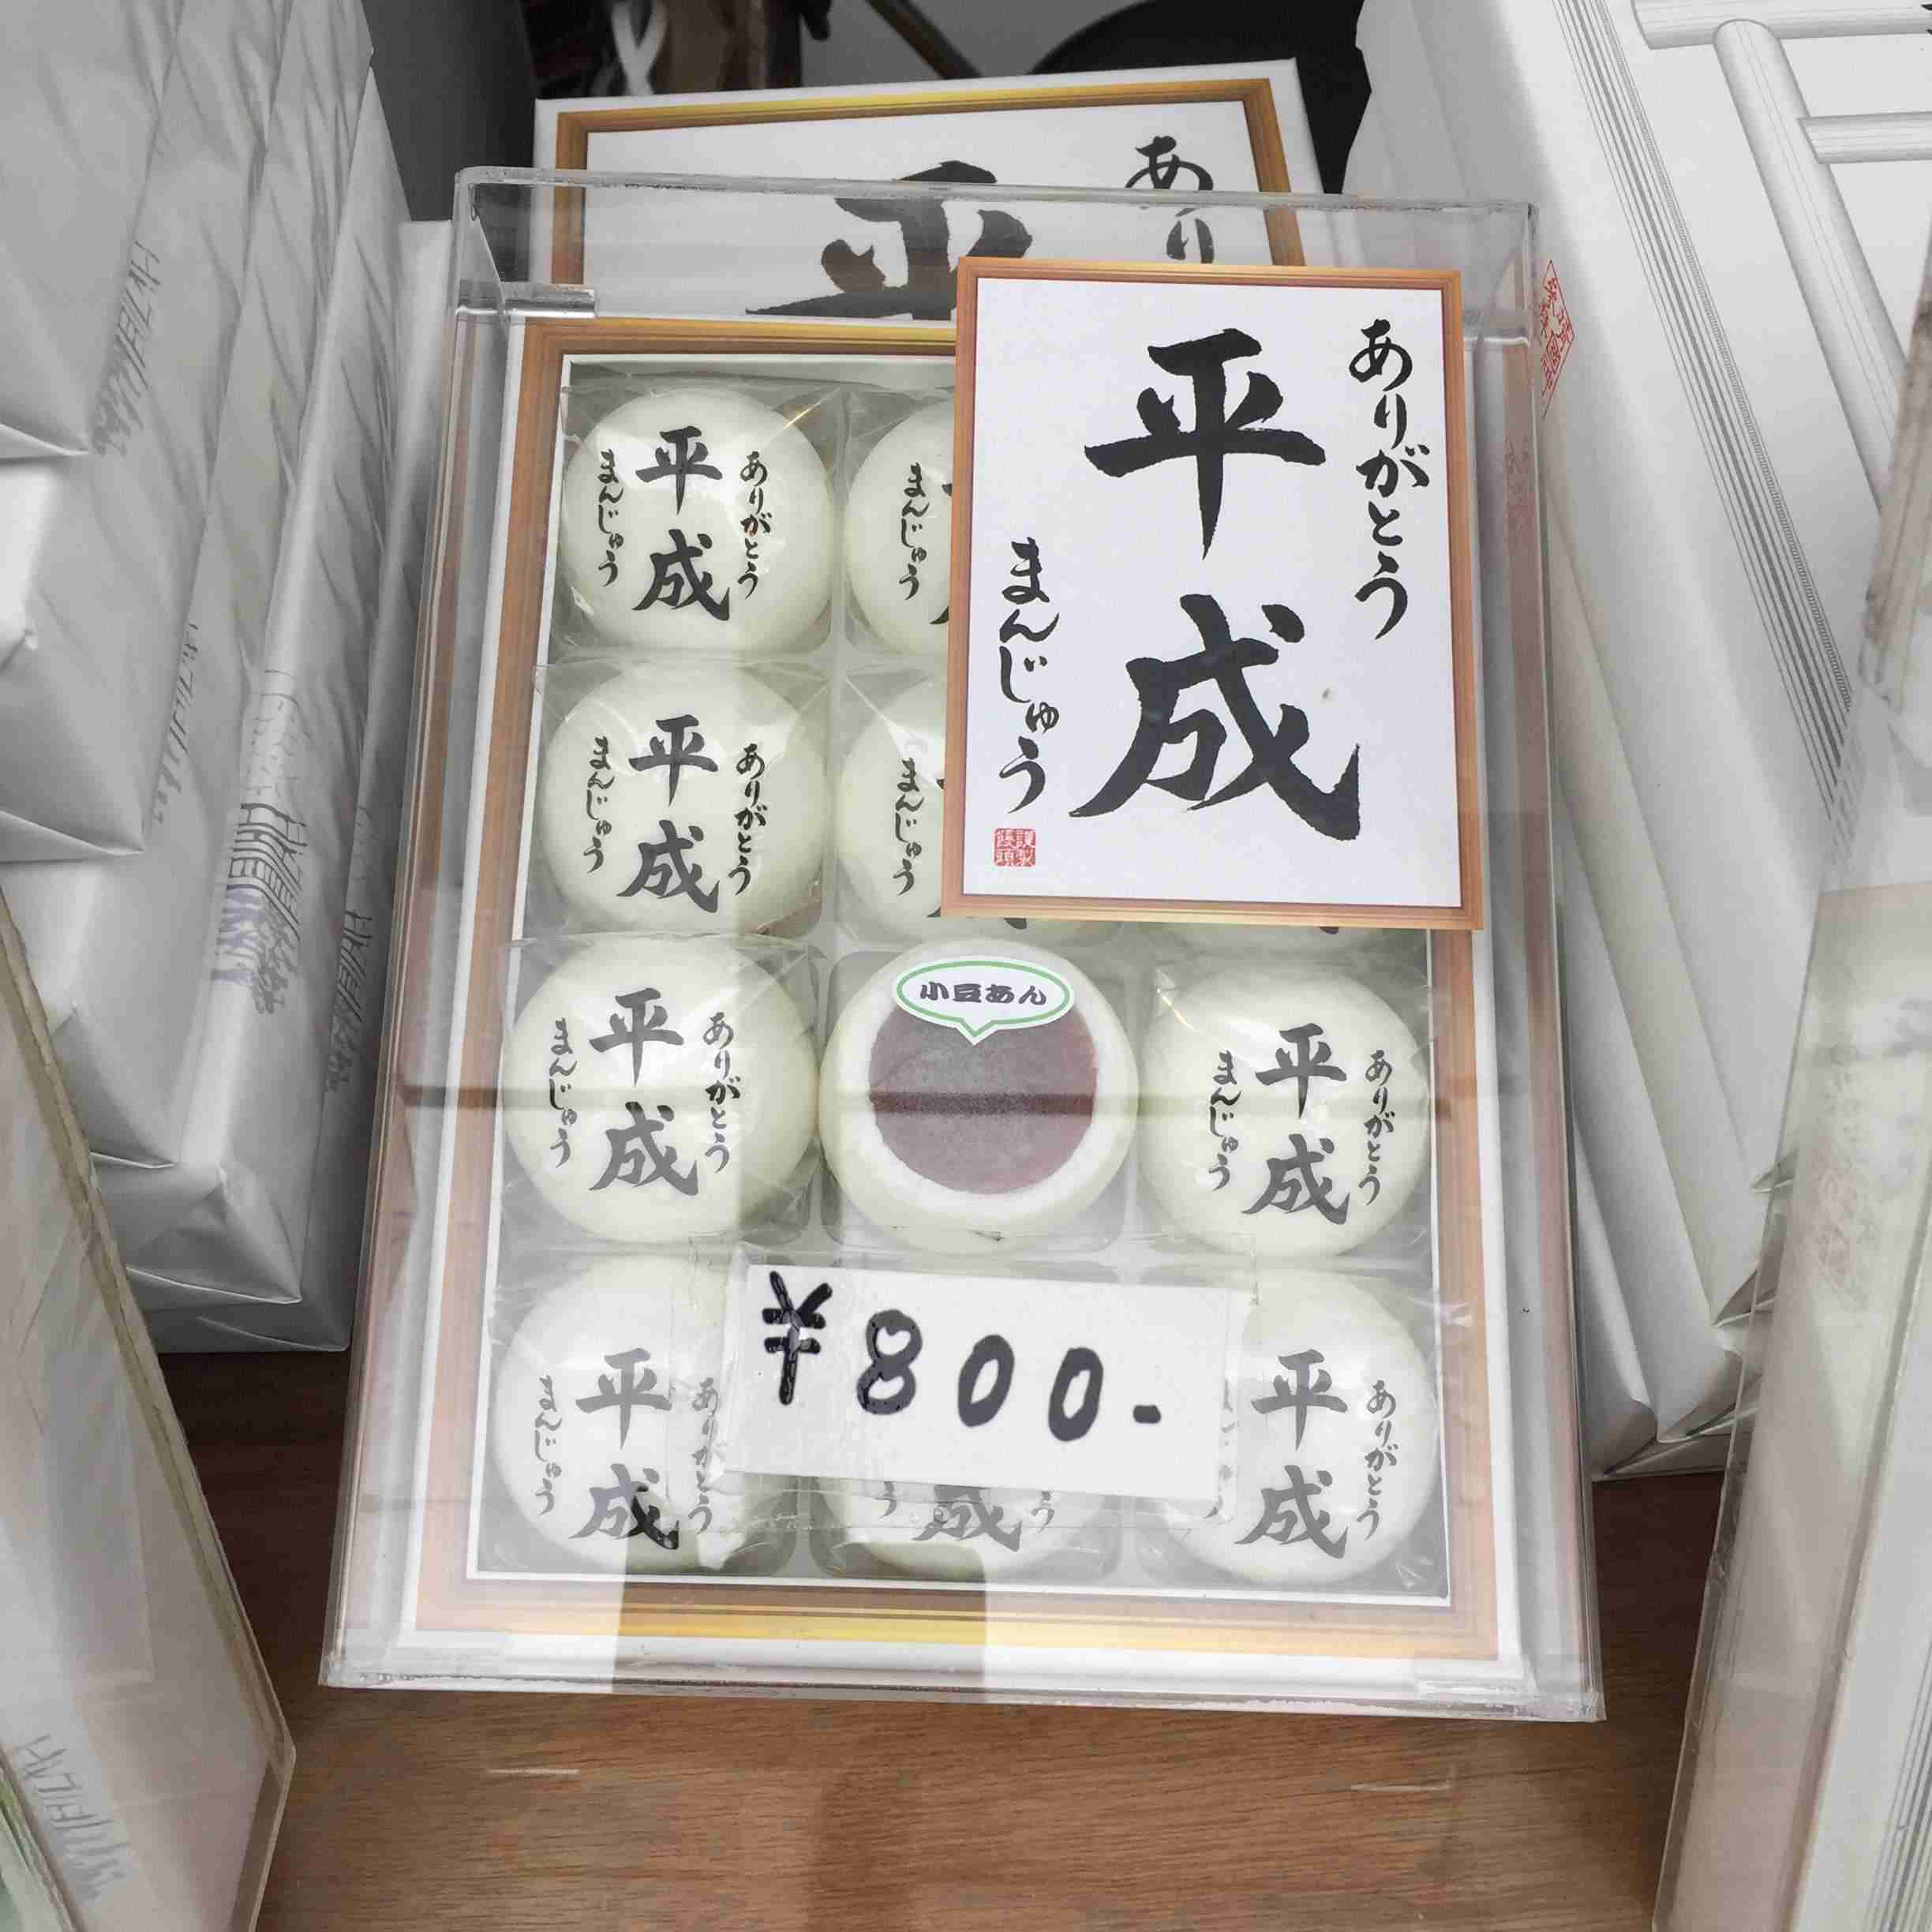 ありがとう
平成
まんじゅう
謹製
饅頭
あり
平
ありがとう
平成
まんじゅう
まんじゅう
ありがとう
平成
まんじゅう
まんじゅう
ありがとう
平成
まんじゅう
小豆あん
ありがとう
平成
まんじゅう
ありがとう
平成
まんじゅう
¥800-
成
う
ありがとう
平成